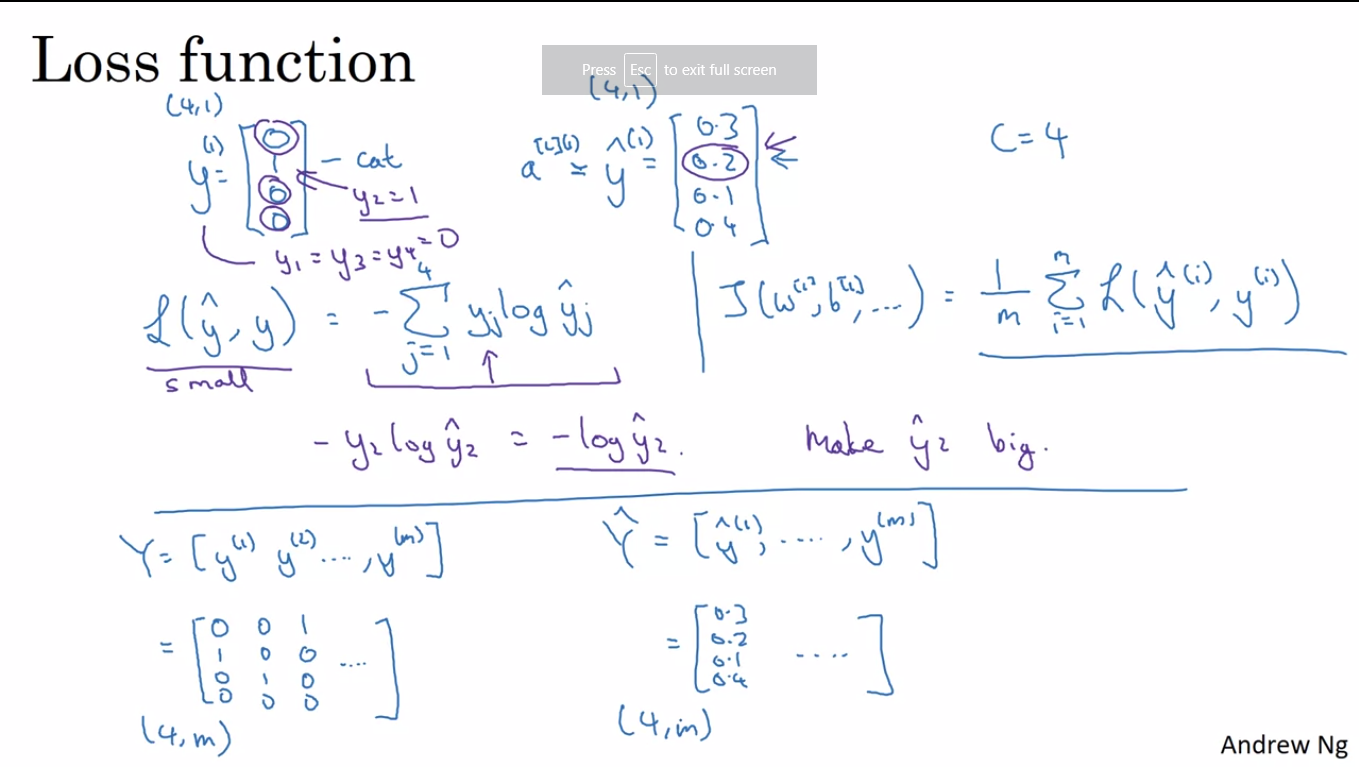 Loss function
Press Esc to exit full screen
(4,1)
(4,1)
y⁽¹⁾ = [0 1 0 0] - cat
y₂ = 1
y₁ = y₃ = y₄ = 0
a^[L](i) ≃ ŷ^(i) = [0.3 0.2 0.1 0.4]
C = 4
ℒ(ŷ, y) = - Σ_{j=1}^{4} yⱼ log ŷⱼ
small
J(w^[1], b^[1], ...) = 1/m Σ_{i=1}^{m} ℒ(ŷ^(i), y^(i))
- y₂ log ŷ₂ = - log ŷ₂.
Make ŷ₂ big.
Y = [y^(1) y^(2) ...., y^(m)]
Ŷ = [ŷ^(1), ...., y^(m)]
= [0 0 1
1 0 0 ....
0 1 0
0 0 0]
(4,m)
= [0.3
0.2 ....
0.1
0.4]
(4,m)
Andrew Ng